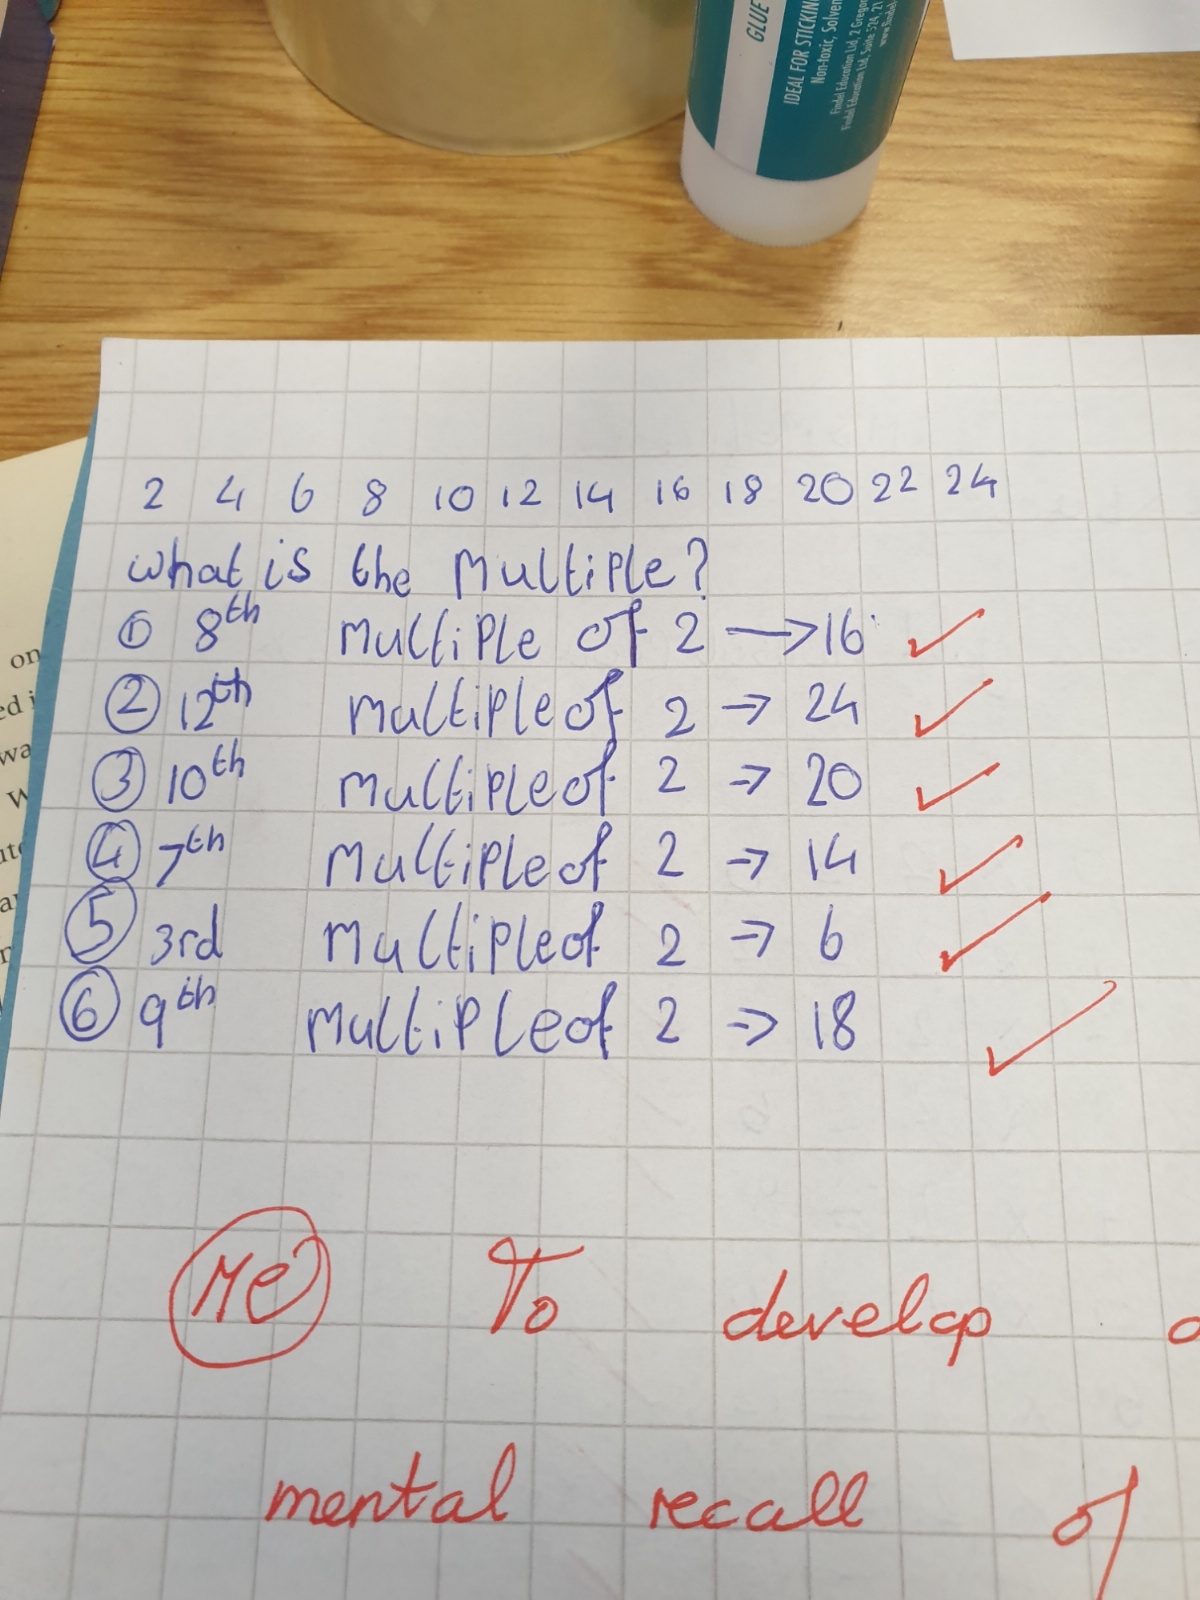 GLUE
IDEAL FOR STICKING
Non-toxic, Solven
Findel Education Ltd, 2 Gregor
Findel Education Ltd, Suite 524, 21
www.findel-
on
ed i
wa
W
2 4 6 8 10 12 14 16 18 20 22 24
what is the Multiple?
① 8th Multiple of 2 → 16
② 12th Multiple of 2 → 24
③ 10th Multiple of 2 → 20
④ 7th Multiple of 2 → 14
⑤ 3rd Multiple of 2 → 6
⑥ 9th Multiple of 2 → 18
Me To develop
mental recall of